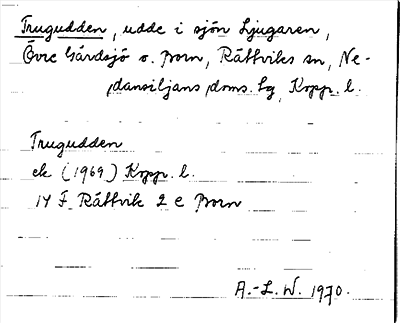 Trugudden, udde i sjön Ljugaren,
Övre Gärdsjö o. Born, Rättviks sn, Ne-
dansiljans doms. lg, Kopp. l.
Trugudden
ek (1969) Kopp. l.
14 F Rättvik 2 e Born
A.-L. W. 1970.